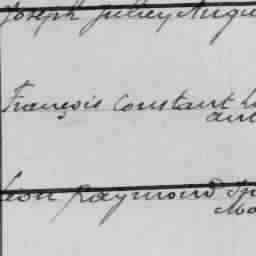 Joseph Julien Augu
François Constant L
ant
Léon Raymond In
Mo